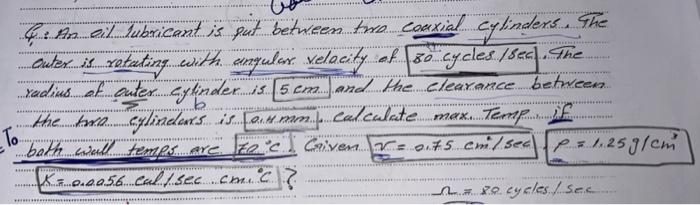 Q: An oil lubricant is put between two coaxial cylinders. The
outer is rotating with angular velocity of 80 cycles/sec. The
radius of outer cylinder is 5 cm and the clearance between
b
the two cylinders is 0.4 mm. calculate max. Temp. if
To
both wall temps are 70 °C. Given ν = 0.75 cm²/sec ρ = 1.25 g/cm³
K = 0.0056 cal/sec.cm.°C ?
Ω = 80 cycles/sec